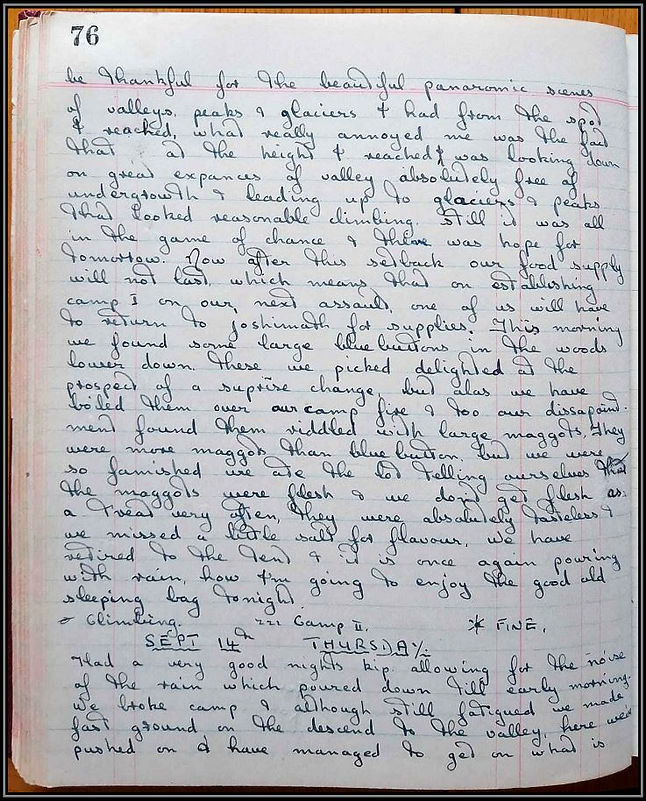 76
be thankful for the beautiful panaromic scenes
of valleys, peaks & glaciers I had from the spot
I reached, what really annoyed me was the fact
that at the height I reached I was looking down
on great expances of valley absolutely free of
undergrowth & leading up to glaciers & peaks
that looked reasonable climbing. Still it was all
in the game of chance & there was hope for
tomorrow. Now after this setback our food supply
will not last, which means that on establishing
camp I on our next assault, one of us will have
to return to Joshimath for supplies. This morning
we found some large blue buttons in the woods
lower down. these we picked delighted at the
prospect of a suprise change, but alas we have
boiled them over our camp fire & too our dissapoint-
ment found them riddled with large maggots. They
were more maggots than blue button, but we were
so famished we ate the lot telling ourselves that
the maggots were flesh & we dont get flesh as
a treat very often, they were absolutely tasteless &
we missed a little salt for flavour. we have
retired to the tent & it is once again pouring
with rain, how I'm going to enjoy the good old
sleeping bag tonight.
Climbing. Camp II. * FINE.
SEPT 14th THURSDAY.
Had a very good nights kip. allowing for the noise
of the rain which poured down till early morning.
we broke camp & although still fatigued we made
fast ground on the descend to the valley, here we
pushed on & have managed to get on what is